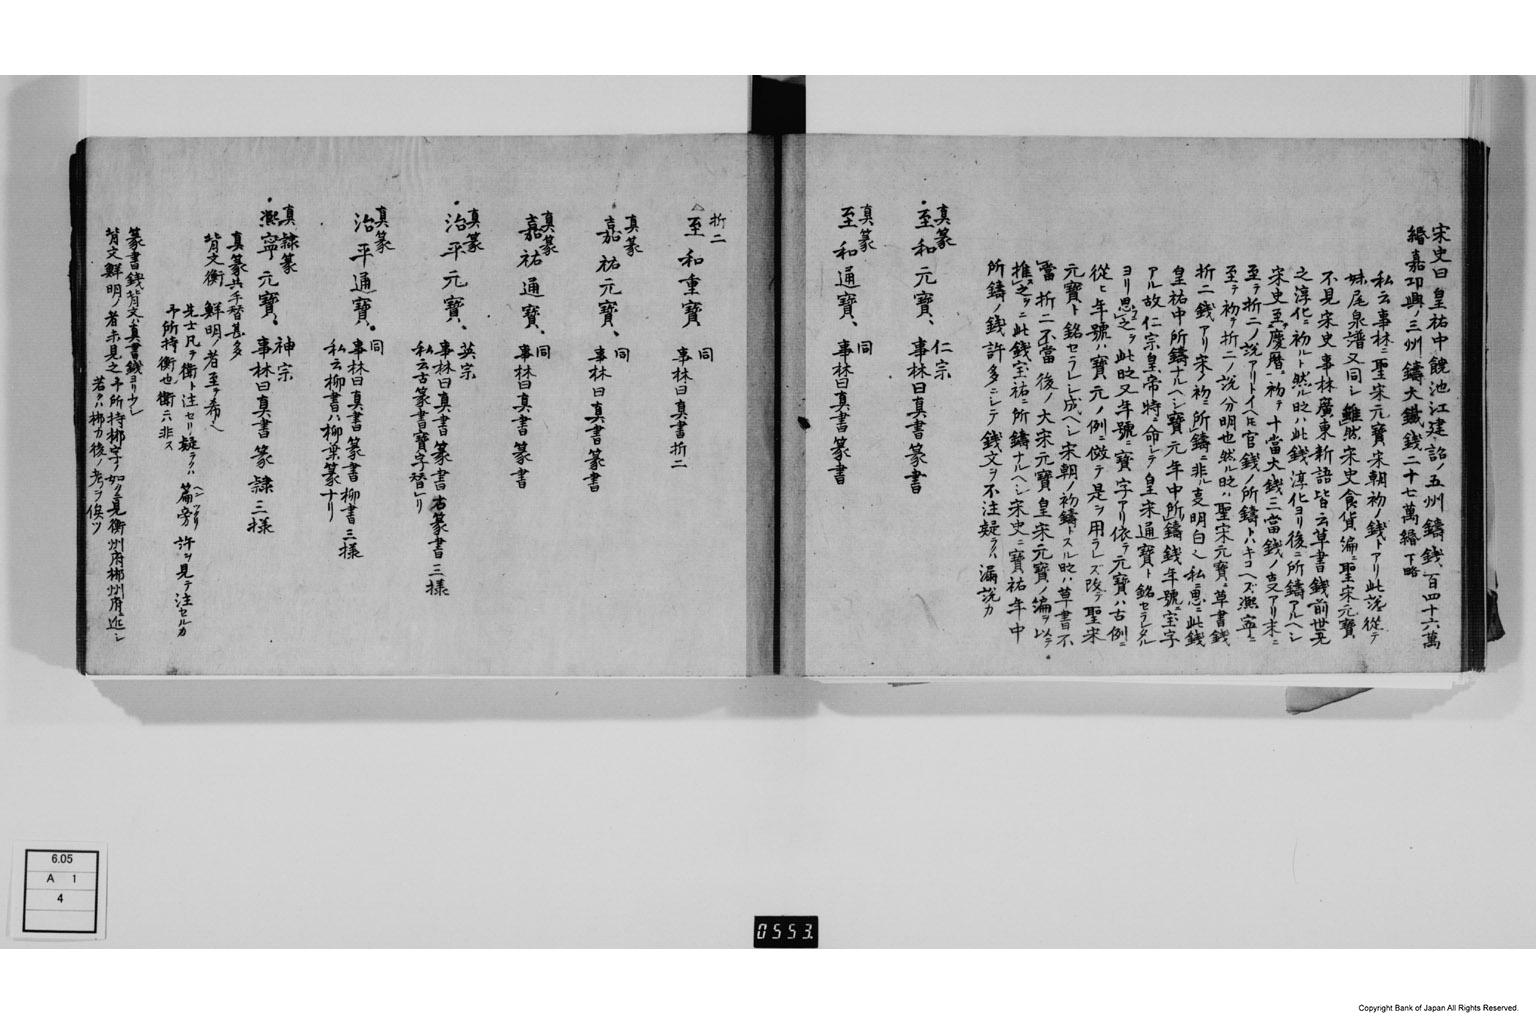 宋史曰皇祐中饒池江建韶ノ五州鑄錢百四十六萬
緡嘉卭興ノ三州鑄大鐵錢二十七萬緡 下略
私云事林ニ聖宋元寶宋朝初ノ錢トアリ此説ニ從テ
妹尾泉譜又同シ雖然宋史食貨編ニ聖宋元寶
不見宋史事林廣東新語皆云草書錢前世无
之淳化ニ初ルト然ル时ハ此錢淳化ヨリ後ニ所鑄アルヘシ
宋史ニ至慶暦ニ初テ十當大錢三當錢ノ支アリ末ニ
至テ折二ノ説アリトイヘ𪜈官錢ノ所鑄トハキコヘズ熈寧ニ
至テ初テ折二ノ説分明也然ル时ハ聖宋元寶ニ草書錢
折二錢アリ宋ノ初ニ所鑄ニ非ル支明白ヘシ私ニ思ニ此錢
皇祐中所鑄ナルヘシ寶元年中所鑄錢年號ニ宝字
アル故仁宗皇帝特ニ命シテ皇宋通寶ト銘セラレタル
ヨリ思之ヲ此时又年號ニ寶字アリ依テ元寶ハ古例ニ
從ヒ年號ハ寶元ノ例ニ倣テ是ヲ用ラレズ改テ聖宋
元寶ト銘セラレシ成ヘシ宋朝ノ初鑄トスル时ハ草書不
當折二不當後ノ大宋元寶皇宋元寶ノ編ヲ以テ
推之ヲニ此錢宝祐ニ所鑄ナルヘシ宋史ニ寶祐年中
所鑄ノ錢許多ニシテ錢文ヲ不注疑ラクハ漏説カ
真篆
至和元寶、 仁宗 事林曰真書篆書
真篆
至和通寶、 同 事林曰真書篆書
折二
△至和重寶 同 事林曰真書折二
真篆
嘉祐元寶、 同 事林曰真書篆書
真篆
嘉祐通寶、 同 事林曰真書篆書
真篆
治平元寶、 英宗 事林曰真書篆書古篆書三様
私云古篆書寶字替レリ
真篆
治平通寶 同 事林曰真書篆書柳書三様
私云柳書ハ柳葉篆ナリ
真隷篆
熈寧元寶、 神宗 事林曰真書篆隷三様
真篆共手替甚多
背文衡 鮮明ノ者至テ希ヘ
先士凡テ衛ト注セリ疑ラクハ篇旁許ヲ見テ注セルカ
ヘンツクリ
予所持衡也衛ニ非ス
篆書錢背文ハ真書錢ヨリ少シ
背文鮮明ノ者未見之予所持郴字ノ如ク見衡州府郴州府ニ近シ
若クハ郴カ後ノ考ヲ俟ツ
6.05
A 1
4
0553.
Copyright Bank of Japan All Rights Reserved.